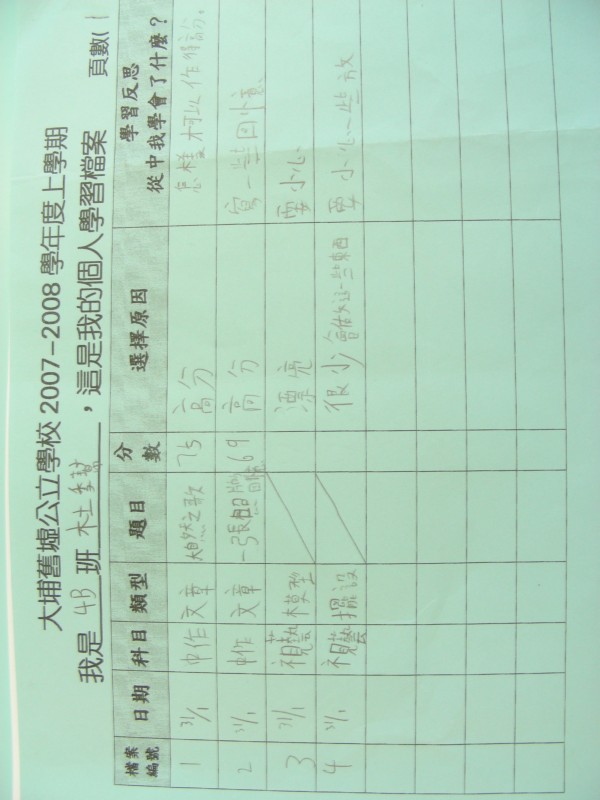 大埔舊墟公立學校 2007-2008 學年度上學期
我是 4B 班 杜 ，這是我的個人學習檔案 頁數( 1
檔案編號 日期 科目 類型 題目 分數 選擇原因 學習反思 從中我學會了什麼？
1 31/1 中作 文章 大自然之歌 75 高分 怎樣可以作得高分。
2 31/1 中作 文章 一張 69 高分 寫一些回憶
3 31/1 視藝 模型 漂亮 要小心
4 31/1 視藝 擺設 很少會做這一些東西 要小心一些放